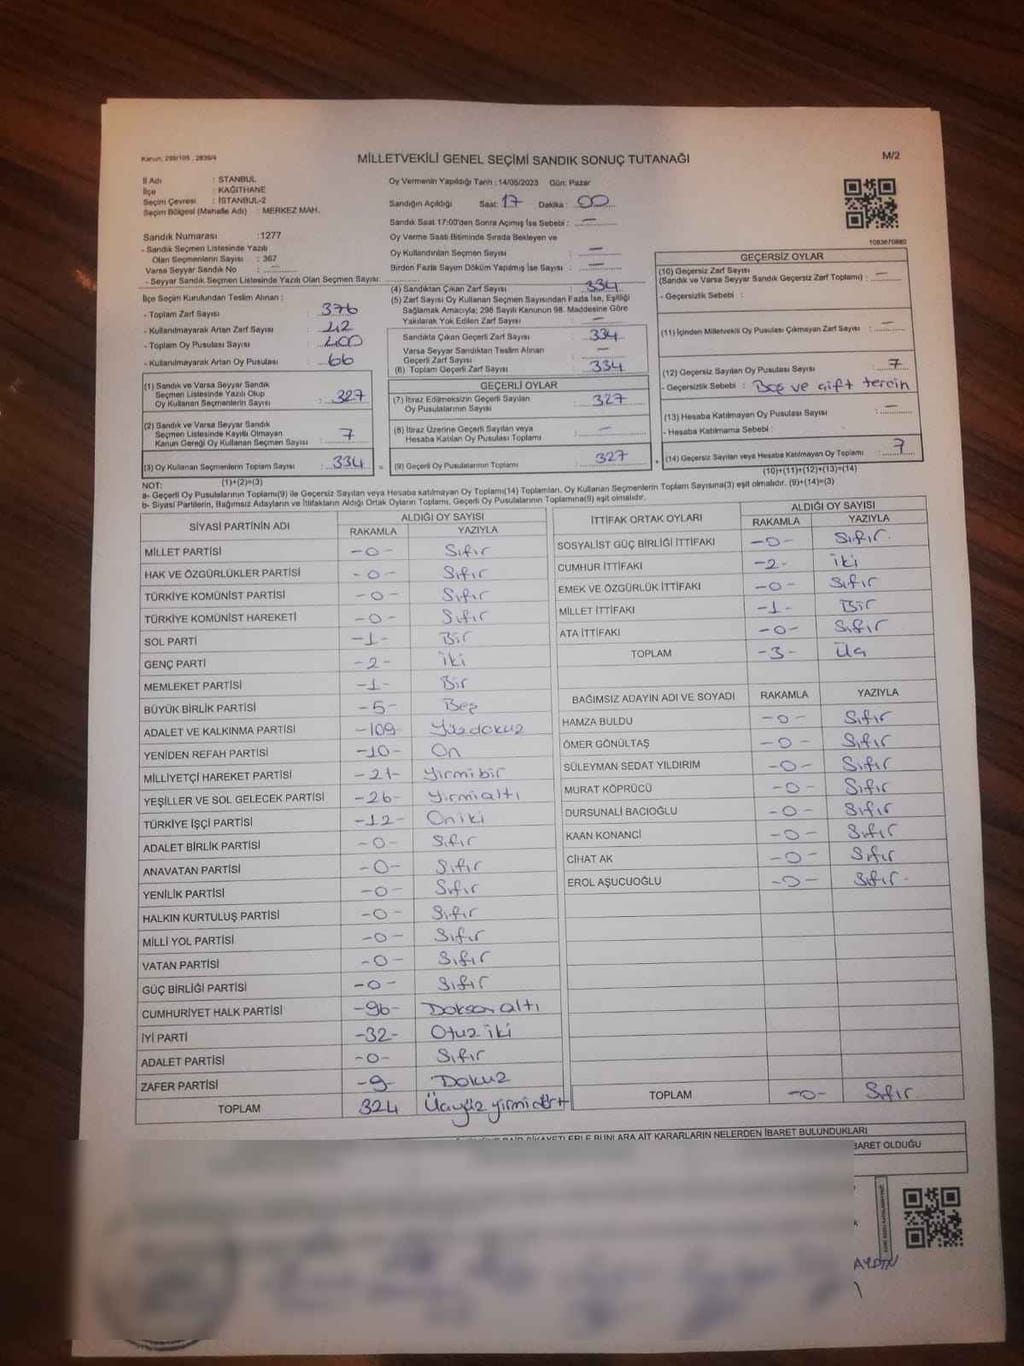 Kanun: 298/105 , 2839/4
MİLLETVEKİLİ GENEL SEÇİMİ SANDIK SONUÇ TUTANAĞI
M/2
İl Adı : İSTANBUL
İlçe : KAĞITHANE
Seçim Çevresi : İSTANBUL-2
Seçim Bölgesi (Mahalle Adı) : MERKEZ MAH.
Sandık Numarası :1277
- Sandık Seçmen Listesinde Yazılı
Olan Seçmenlerin Sayısı : 367
Varsa Seyyar Sandık No : —
- Seyyar Sandık Seçmen Listesinde Yazılı Olan Seçmen Sayısı:
İlçe Seçim Kurulundan Teslim Alınan :
- Toplam Zarf Sayısı : 376
- Kullanılmayarak Artan Zarf Sayısı : 42
- Toplam Oy Pusulası Sayısı : 400
- Kullanılmayarak Artan Oy Pusulası : 66
(1) Sandık ve Varsa Seyyar Sandık
Seçmen Listesinde Yazılı Olup
Oy Kullanan Seçmenlerin Sayısı : 327
(2) Sandık ve Varsa Seyyar Sandık
Seçmen Listesinde Kayıtlı Olmayan
Kanun Gereği Oy Kullanan Seçmen Sayısı : 7
(3) Oy Kullanan Seçmenlerin Toplam Sayısı : 334 =
(1)+(2)=(3)
Oy Vermenin Yapıldığı Tarih : 14/05/2023 Gün: Pazar
Sandığın Açıldığı Saat: 17 Dakika : 00
Sandık Saat 17:00'den Sonra Açılmış İse Sebebi : —
Oy Verme Saati Bitiminde Sırada Bekleyen ve
Oy Kullandırılan Seçmen Sayısı : —
Birden Fazla Sayım Döküm Yapılmış İse Sayısı : —
(4) Sandıktan Çıkan Zarf Sayısı : 334
(5) Zarf Sayısı Oy Kullanan Seçmen Sayısından Fazla İse, Eşitliği
Sağlamak Amacıyla; 298 Sayılı Kanunun 98. Maddesine Göre
Yakılarak Yok Edilen Zarf Sayısı : —
Sandıkta Çıkan Geçerli Zarf Sayısı : 334
Varsa Seyyar Sandıktan Teslim Alınan
Geçerli Zarf Sayısı : —
(6) Toplam Geçerli Zarf Sayısı : 334
GEÇERLİ OYLAR
(7) İtiraz Edilmeksizin Geçerli Sayılan
Oy Pusulalarının Sayısı : 327
(8) İtiraz Üzerine Geçerli Sayılan veya
Hesaba Katılan Oy Pusulası Toplamı : —
(9) Geçerli Oy Pusulalarının Toplamı : 327 +
1083670880
GEÇERSİZ OYLAR
(10) Geçersiz Zarf Sayısı
(Sandık ve Varsa Seyyar Sandık Geçersiz Zarf Toplamı) : —
- Geçersizlik Sebebi :
(11) İçinden Milletvekili Oy Pusulası Çıkmayan Zarf Sayısı : —
(12) Geçersiz Sayılan Oy Pusulası Sayısı : 7
- Geçersizlik Sebebi : Boş ve çift tercih
(13) Hesaba Katılmayan Oy Pusulası Sayısı : —
- Hesaba Katılmama Sebebi :
(14) Geçersiz Sayılan veya Hesaba Katılmayan Oy Toplamı : 7
(10)+(11)+(12)+(13)=(14)
NOT:
a- Geçerli Oy Pusulalarının Toplamı(9) ile Geçersiz Sayılan veya Hesaba katılmayan Oy Toplamı(14) Toplamları, Oy Kullanan Seçmenlerin Toplam Sayısına(3) eşit olmalıdır. (9)+(14)=(3)
b- Siyasi Partilerin, Bağımsız Adayların ve İttifakların Aldığı Ortak Oyların Toplamı, Geçerli Oy Pusulalarının Toplamına(9) eşit olmalıdır.
SİYASİ PARTİNİN ADI ALDIĞI OY SAYISI
RAKAMLA YAZIYLA
MİLLET PARTİSİ -0- Sıfır
HAK VE ÖZGÜRLÜKLER PARTİSİ -0- Sıfır
TÜRKİYE KOMÜNİST PARTİSİ -0- Sıfır
TÜRKİYE KOMÜNİST HAREKETİ -0- Sıfır
SOL PARTİ -1- Bir
GENÇ PARTİ -2- İki
MEMLEKET PARTİSİ -1- Bir
BÜYÜK BİRLİK PARTİSİ -5- Beş
ADALET VE KALKINMA PARTİSİ -109- Yüzdokuz
YENİDEN REFAH PARTİSİ -10- On
MİLLİYETÇİ HAREKET PARTİSİ -21- Yirmibir
YEŞİLLER VE SOL GELECEK PARTİSİ -26- Yirmialtı
TÜRKİYE İŞÇİ PARTİSİ -12- Oniki
ADALET BİRLİK PARTİSİ -0- Sıfır
ANAVATAN PARTİSİ -0- Sıfır
YENİLİK PARTİSİ -0- Sıfır
HALKIN KURTULUŞ PARTİSİ -0- Sıfır
MİLLİ YOL PARTİSİ -0- Sıfır
VATAN PARTİSİ -0- Sıfır
GÜÇ BİRLİĞİ PARTİSİ -0- Sıfır
CUMHURİYET HALK PARTİSİ -96- Doksan altı
İYİ PARTİ -32- Otuz iki
ADALET PARTİSİ -0- Sıfır
ZAFER PARTİSİ -9- Dokuz
TOPLAM 324 Üçyüz yirmidört
İTTİFAK ORTAK OYLARI ALDIĞI OY SAYISI
RAKAMLA YAZIYLA
SOSYALİST GÜÇ BİRLİĞİ İTTİFAKI -0- Sıfır
CUMHUR İTTİFAKI -2- İki
EMEK VE ÖZGÜRLÜK İTTİFAKI -0- Sıfır
MİLLET İTTİFAKI -1- Bir
ATA İTTİFAKI -0- Sıfır
TOPLAM -3- Üç
BAĞIMSIZ ADAYIN ADI VE SOYADI RAKAMLA YAZIYLA
HAMZA BULDU -0- Sıfır
ÖMER GÖNÜLTAŞ -0- Sıfır
SÜLEYMAN SEDAT YILDIRIM -0- Sıfır
MURAT KÖPRÜCÜ -0- Sıfır
DURSUNALİ BACIOĞLU -0- Sıfır
KAAN KONANCİ -0- Sıfır
CİHAT AK -0- Sıfır
EROL AŞUCUOĞLU -0- Sıfır
TOPLAM -0- Sıfır
ARA AİT KARARLARIN NELERDEN İBARET BULUNDUKLARI
BARET OLDUĞU